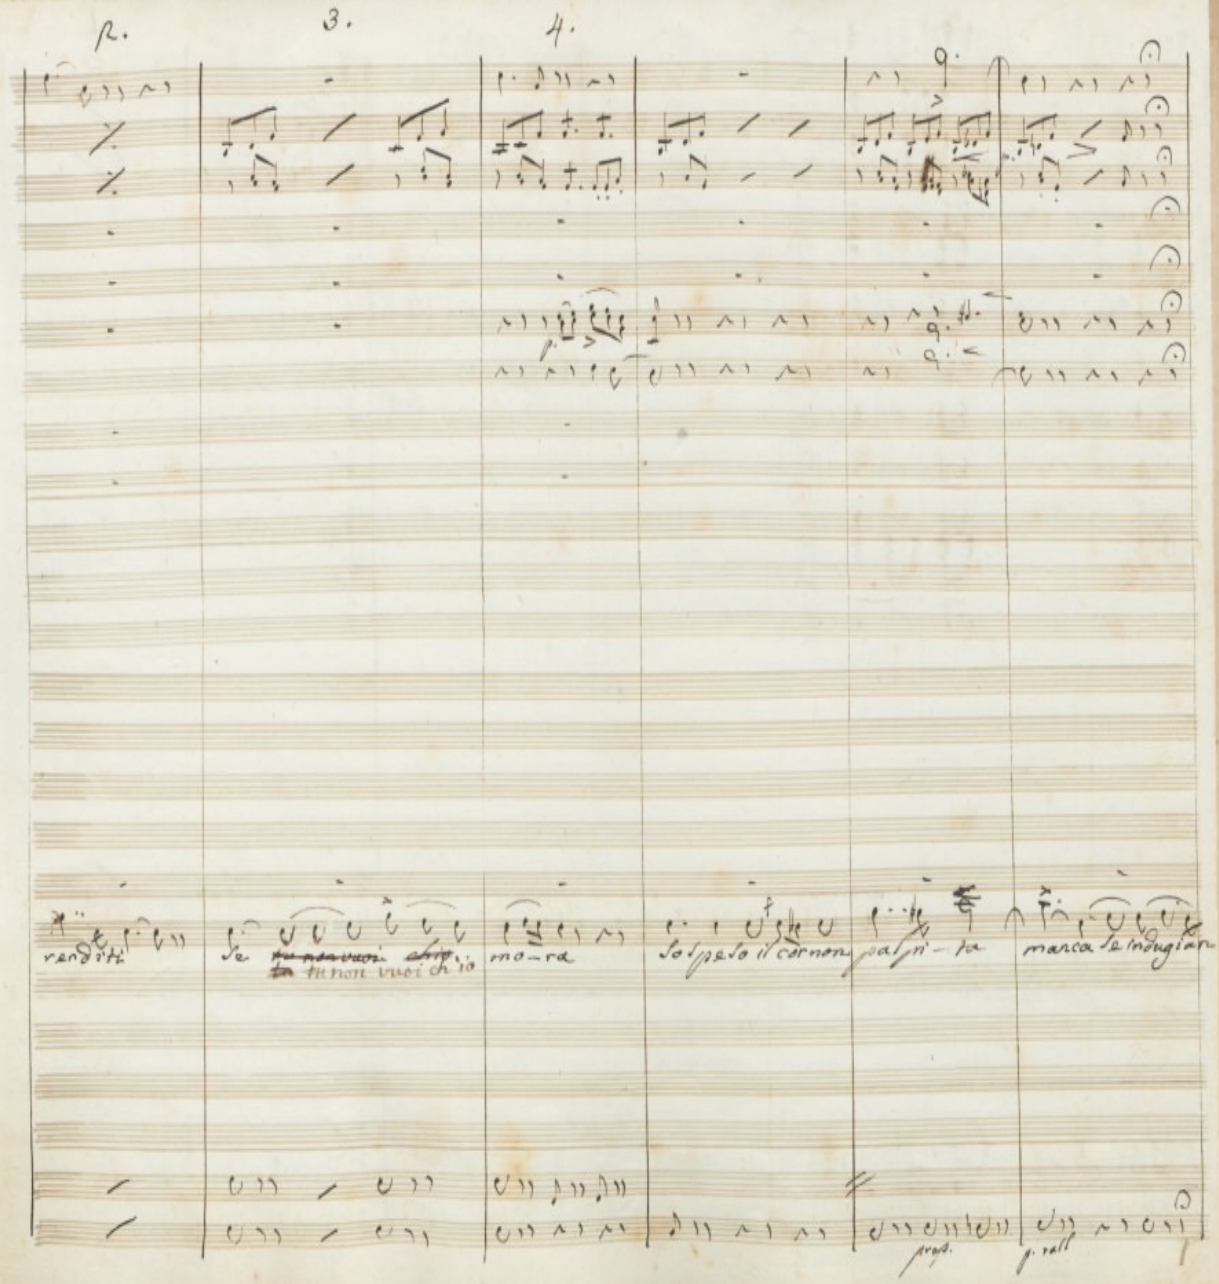 2. 3. 4.
p.
renditi se tu non vuoi chio mo-ra sospeso il cor non palpi-ta manca se indugi an
tu non vuoi ch'io
p. rall